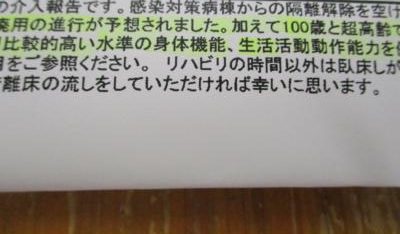 の介入報告です。感染対策病棟からの隔離解除を空け
廃用の進行が予想されました。加えて100歳と超高齢で
比較的高い水準の身体機能、生活活動動作能力を
をご参照ください。 リハビリの時間以外は臥床しが
離床の流しをしていただければ幸いに思います。